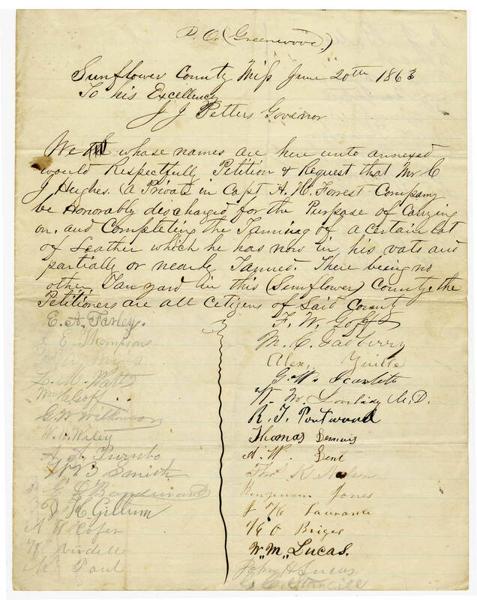 P.O. (Greenwood)
Sunflower County Miss June 20th 1863
To his Excellency
J J Petters Govenor
We whose names are here unto annexed
would Respectfully Petition & Request that Mr C
J Hughes. (a Private in Capt A. H. Forest Company
be Honorably discharged for the Purpose of Carying
on. and Completing the Tanning of a certain lot
of Leather which he has now in his vats and
partially or nearly Tanned. There being no
other Tanyard in this (Sunflower) County. the
Petitioners are all citizens of Said County
E. A. Farley.
Thompson
Watts
G W Wilkinson
Wiley
Burnbo
B Smith
K Gillum
A W Cofer
Paul
F. W. Goff
M. C. Gadberry
Alex
G. W. Scarlett
M.D.
R. T. Portwood
Thomas
A. W. Dent
Thos K
Jones
Laurance
Briges
W. M. Lucas.
John H Lucas